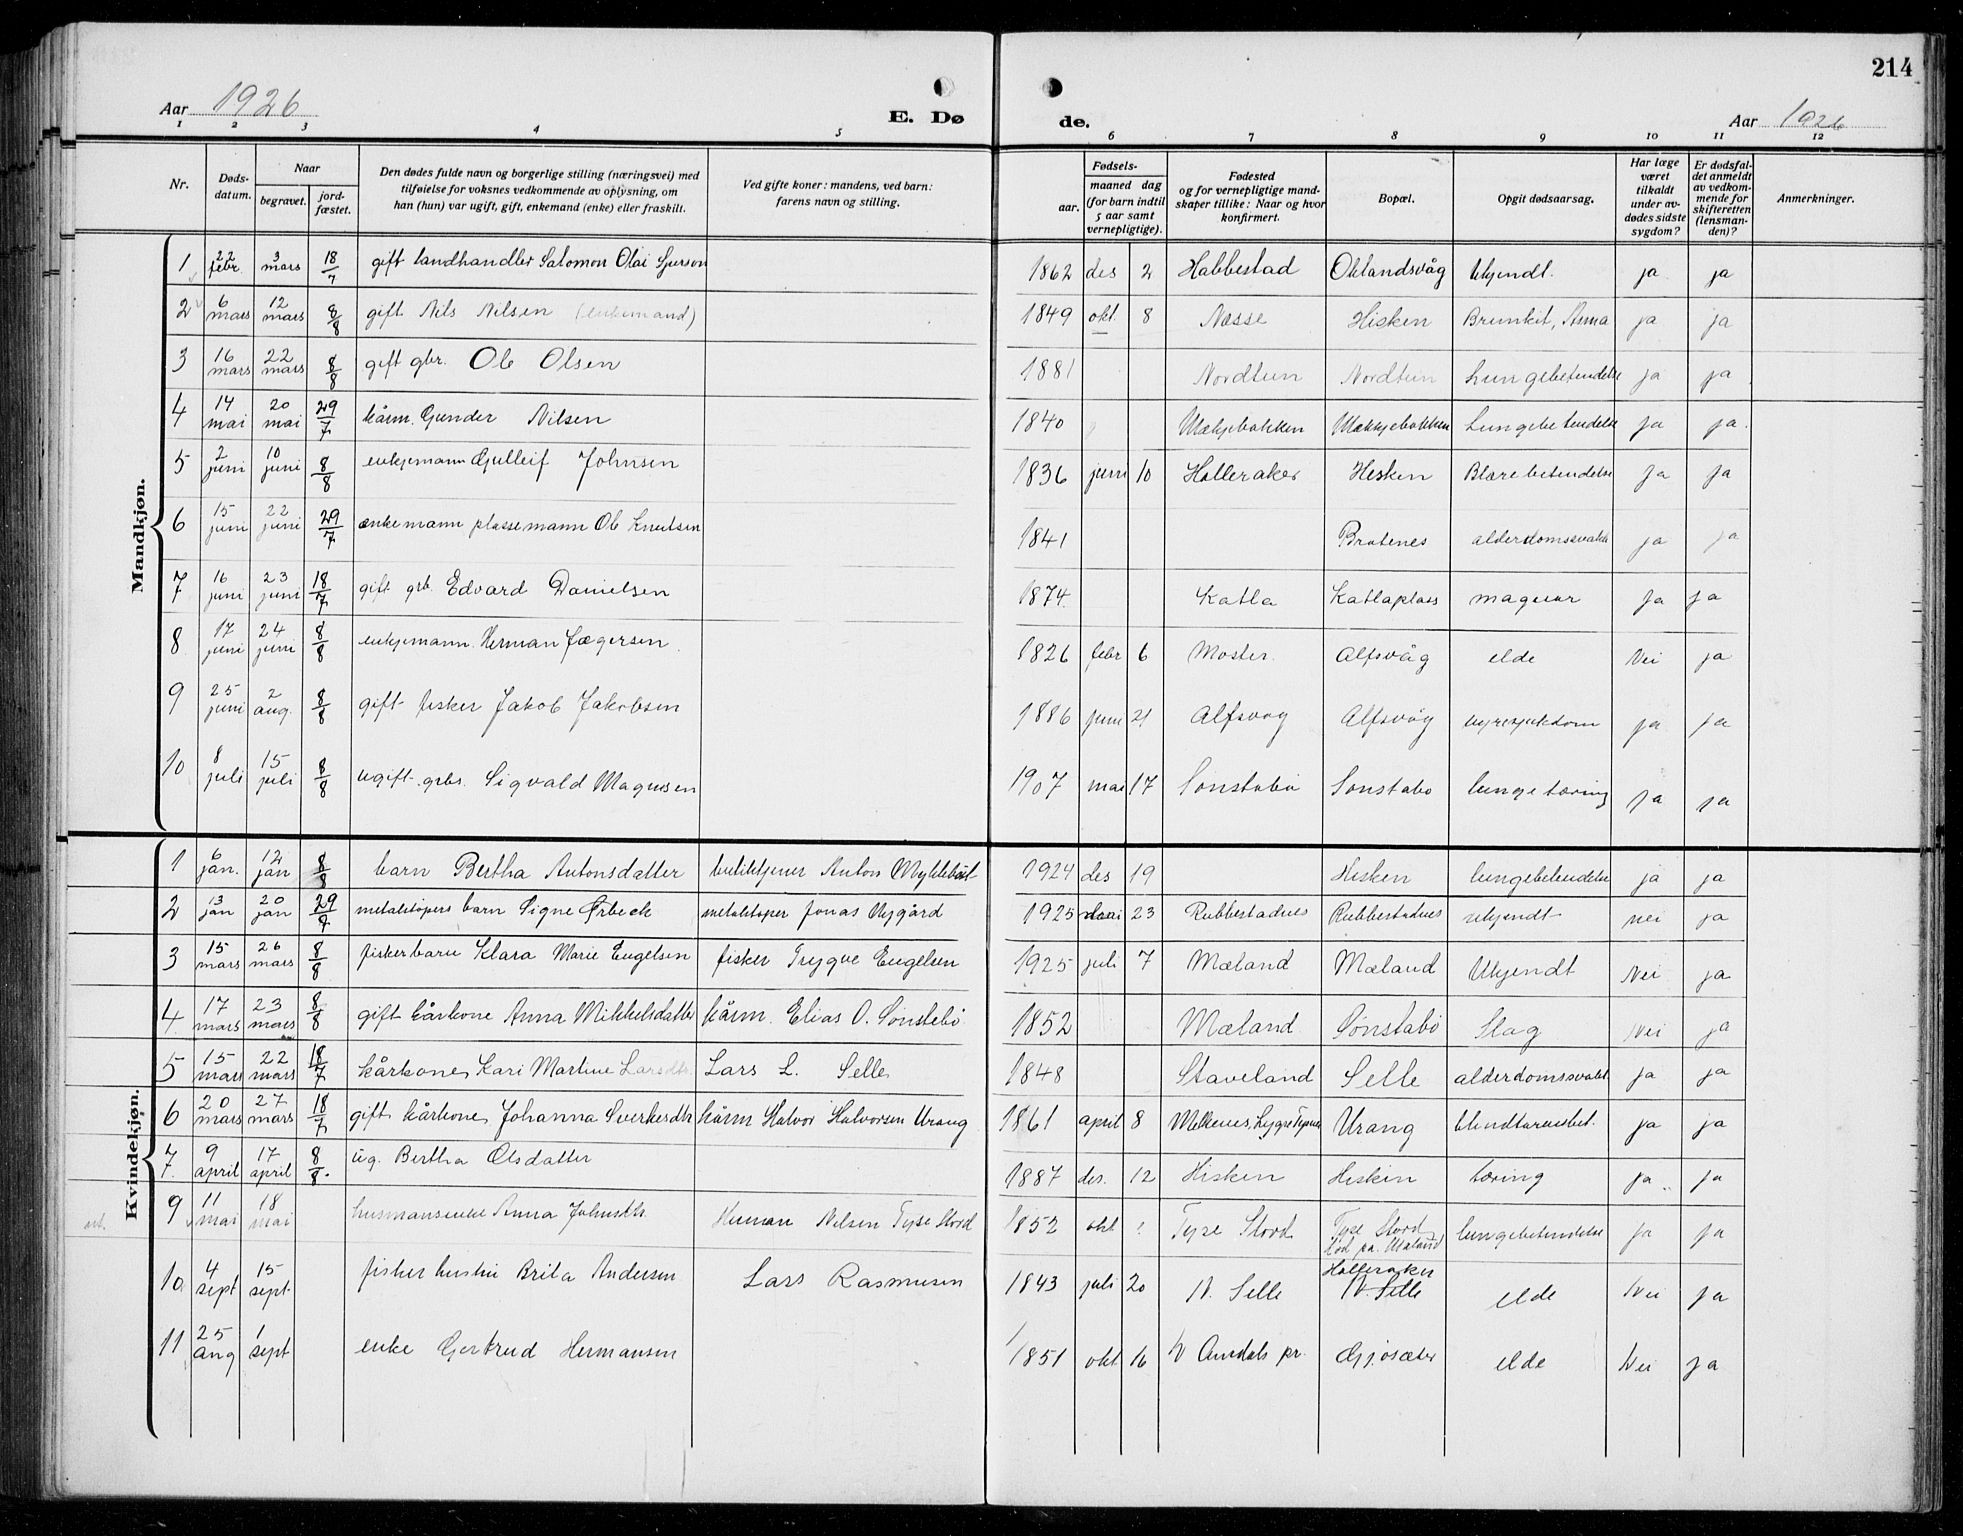 214
Aar 1926
E. Dø
de.
Aar 1926
1 2 3 4 5 6 7 8 9 10 11 12
Nr.
Dødsdatum.
Naar
begravet.
jordfæstet.
Den dødes fulde navn og borgerlige stilling (næringsvei) med
tilføielse for voksnes vedkommende av oplysning, om
han (hun) var ugift, gift, enkemand (enke) eller fraskilt.
Ved gifte koner: mandens, ved barn:
farens navn og stilling.
Fødsels-
aar.
maaned dag
(for barn indtil
5 aar samt
vernepligtige).
Fødested
og for vernepligtige mand-
skaper tillike: Naar og hvor
konfirmert.
Bopæl.
Opgit dødsaarsag.
Har læge
været
tilkaldt
under av-
dødes sidste
sygdom?
Er dødsfal-
det anmeldt
av vedkom-
mende for
skifteretten
(lensman-
den)?
Anmerkninger.
Mandkjøn.
1 22 febr. 3 mars 18/7 gift landhandler Salomon Olai 1862 des 2 Habbestad Oklandsvåg Ukjendt. ja ja
2 6 mars 12 mars 8/8 gift Nils Nilsen (enkemand) 1849 okt. 8 Nesse Hisken ja ja
3 16 mars 22 mars 8/8 gift gbr. Ole Olsen 1881 Nordtun Nordtun Lungebetendelse ja ja
4 14 mai 20 mai 29/7 kårm. Gunder Nilsen 1840 Mækjebakken Mækjebakken Lungebetendelse ja ja.
5 2 juni 10 juni 8/8 enkjemann Gulleif Johnsen 1836 juni 10 Holleraker Hesken Blærebetendelse ja ja
6 15 juni 22 juni 29/7 enkemann plassemann Ole Knutsen 1841 Bratenes ja ja
7 16 juni 23 juni 18/7 gift grb. Edvard Danielsen 1874. Katla Katlaplass ja ja
8 17 juni 24 juni 8/8 enkjemann Herman 1826 febr 6 Moster. Alfsvåg elde Nei ja
9 25 juni 2 aug. 8/8 gift fisker Jakob Jakobsen 1886 juni 21 Alfsvåg Alfsvåg nyresjukdom ja ja
10 8 juli 15 juli 8/8 ugift grbr. Sigvald Magnesen 1907 mai 17 Sønstabø Sønstabø lungetæring ja ja
Kvindekjøn.
1 6 jan. 12 jan 8/8 barn Bertha Antonsdatter Anton Myklebust 1924 des 19 Hisken lungebetendelse ja ja
2 13 jan 20 jan 29/ metalstøpers barn Signe Ørbeck metalstøper Jonas Nygård 1925 23 Rubbestadnes Rubbestadnes ukjendt nei ja
3 15 mars 26 mars 8/8 fiskerbarn Klara Marie Engelsen fisker Trygve Engelsen 1925 juli 7 Mæland Mæland Ukjendt Nei ja
4 17 mars 23 mars 8/8 gift kårkone Anna Mikkelsdatter kårm. Elias O. Sønstebø 1852 Mæland Sønstabø Slag Nei ja
5 15 mars 22 mars 18/7 kårkone Kari Martine Larsdtr. Lars L. Selle 1848 Staveland Selle alderdomssvakt ja ja
6 20 mars 27 mars 18/7 gift kårkone, Johanna Sverkesdtr kårm Halvor Halvorsen Urang 1861 april 8 Urang blindtarmsbet. ja ja
7 7. 9 april 17 april 8/8. ug. Bertha Olsdatter 1887 des. 12 Hisken Hisken tæring ja ja
9 11 mai 18 mai husmansenke Anna Johnsdtr. Herman Nilsen Tyse Stord 1852 okt Tyse Stord Tyse Stord død på Mæland lungebetendelse ja ja
10 4 sept 15 sept. fisker Brita Andersen Lars Rasmusen 1843 juli 20 N. Selle Holleraker N. Selle elde Nei ja
11 25 aug 1 sept enke Gertrud Hermansen 1851 okt 16 Gjøsæter elde Nei ja